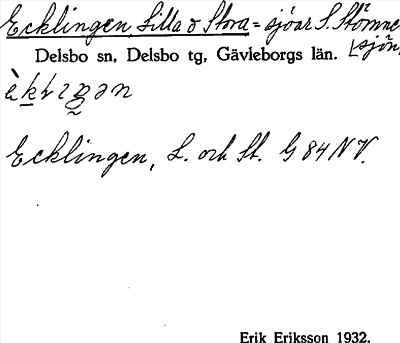 Ecklingen, Lilla o Stora = sjöar S. Stömne
sjön,
Delsbo sn, Delsbo tg, Gävleborgs län.
Ecklingen, L. och St. G 84 NV.
Erik Eriksson 1932.